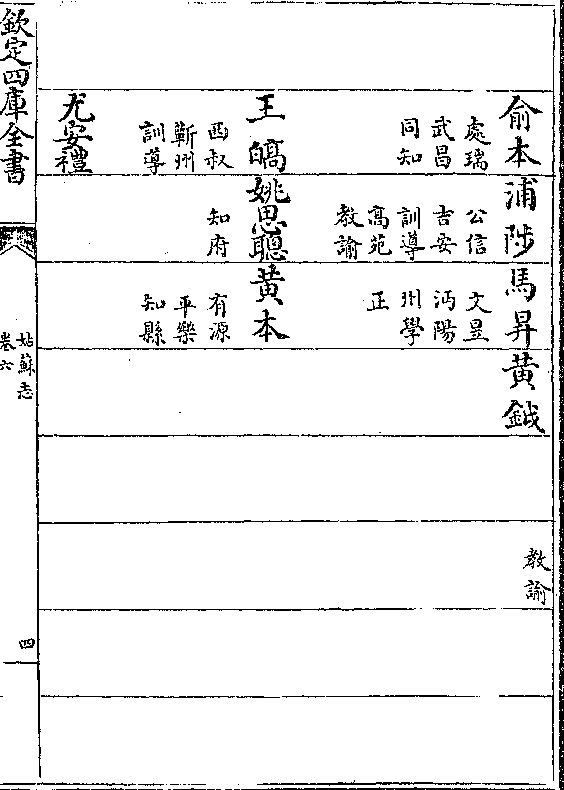 俞本
浦陟
馬昇
黃鉞
教諭
處瑞
公信
文昱
武昌
吉安
沔陽
同知
訓導
州學
高苑
正
教諭
王皜
姚思聰
黃本
酉叔
知府
有源
蘄州
平樂
訓導
知縣
尤安禮
欽定四庫全書
姑蘇志
卷六
四